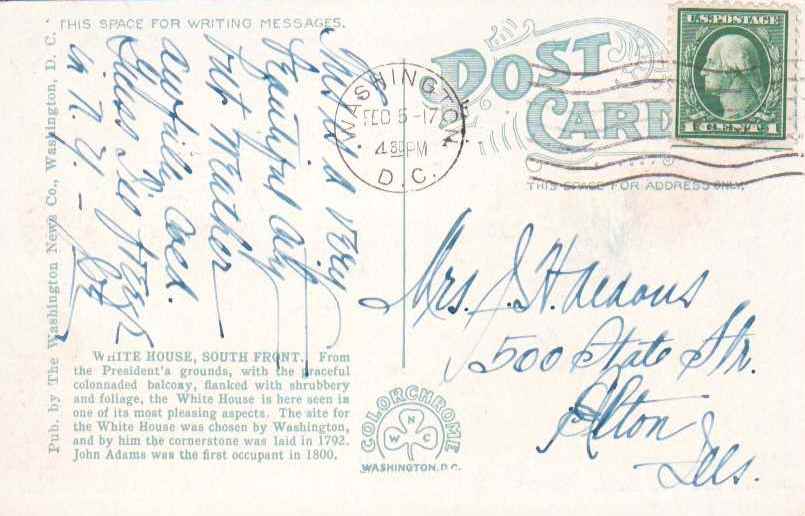 THIS SPACE FOR WRITING MESSAGES.
POST CARD
U.S. POSTAGE
1 CENT 1
WASHINGTON,
FEB 5-17
4 30 PM
D.C.
THIS SPACE FOR ADDRESS ONLY.
Pub. by The Washington News Co., Washington, D. C.
This is a very
beautiful city
but Weather
awfully Cold.
Guess I'll
in N.Y. —
Mrs. J. H.
500 State Str.
Alton
Ills.
WHITE HOUSE, SOUTH FRONT. From
the President's grounds, with the graceful
colonnaded balcony, flanked with shrubbery
and foliage, the White House is here seen in
one of its most pleasing aspects. The site for
the White House was chosen by Washington,
and by him the cornerstone was laid in 1792.
John Adams was the first occupant in 1800.
COLORCHROME
N
W C
WASHINGTON, D.C.